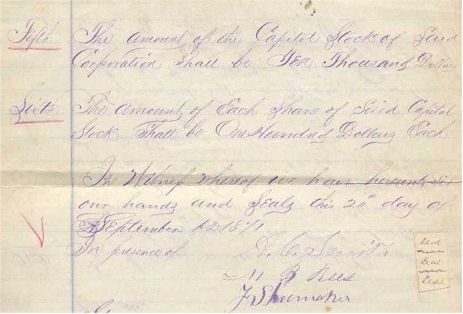 Fifth The Amount of the Capitol Stock of Said
Corporation Shall be Ten Thousand Dollars
Sixth The Amount of Each Share of Said Capitol
Stock Shall be One Hundred Dollars Each
In Witness Whereof we have hereunto Set
our hands and Seals this 20 day of
September AD 1871
In presence of
Smith Seal
Rees Seal
F. Shoemaker Seal